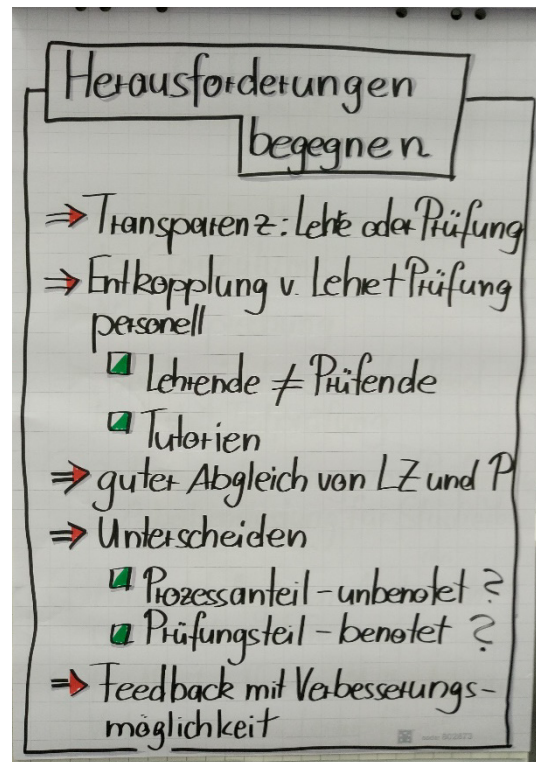 Herausforderungen
begegnen
⇒ Transparenz: Lehre oder Prüfung
⇒ Entkopplung v. Lehre + Prüfung
personell
Lehrende ≠ Prüfende
Tutorien
⇒ guter Abgleich von LZ und P
⇒ Unterscheiden
Prozessanteil - unbenotet ?
Prüfungsteil - benotet ?
⇒ Feedback mit Verbesserungs-
möglichkeit